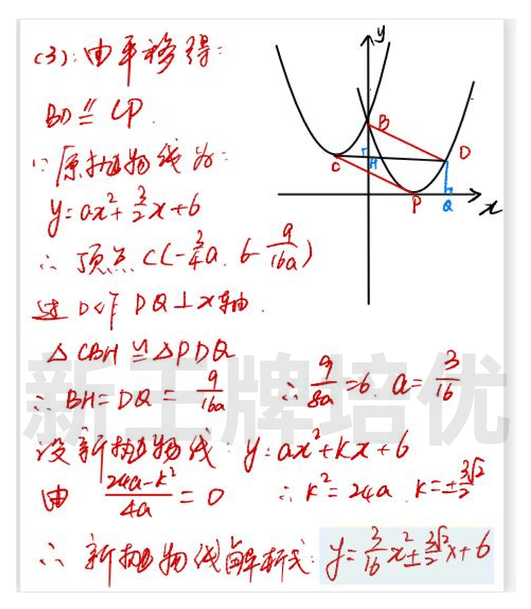 (3):由平移得:
BD∥=CP.
∵原抛物线为:
y=ax²+3/2x+6
∴顶点C(-3/4a, 6-9/16a)
过D作DQ⊥x轴.
△CBH≌△PDQ
∴BH=DQ=9/16a ∴9/8a=6. a=3/16
设新抛物线:y=ax²+kx+6
由 (24a-k²)/4a=0 ∴k²=24a k=±3√2/2
∴新抛物线解析式: y=3/16x²±3√2/2x+6
y
B
D
C
H
P
Q
x
新王牌培优